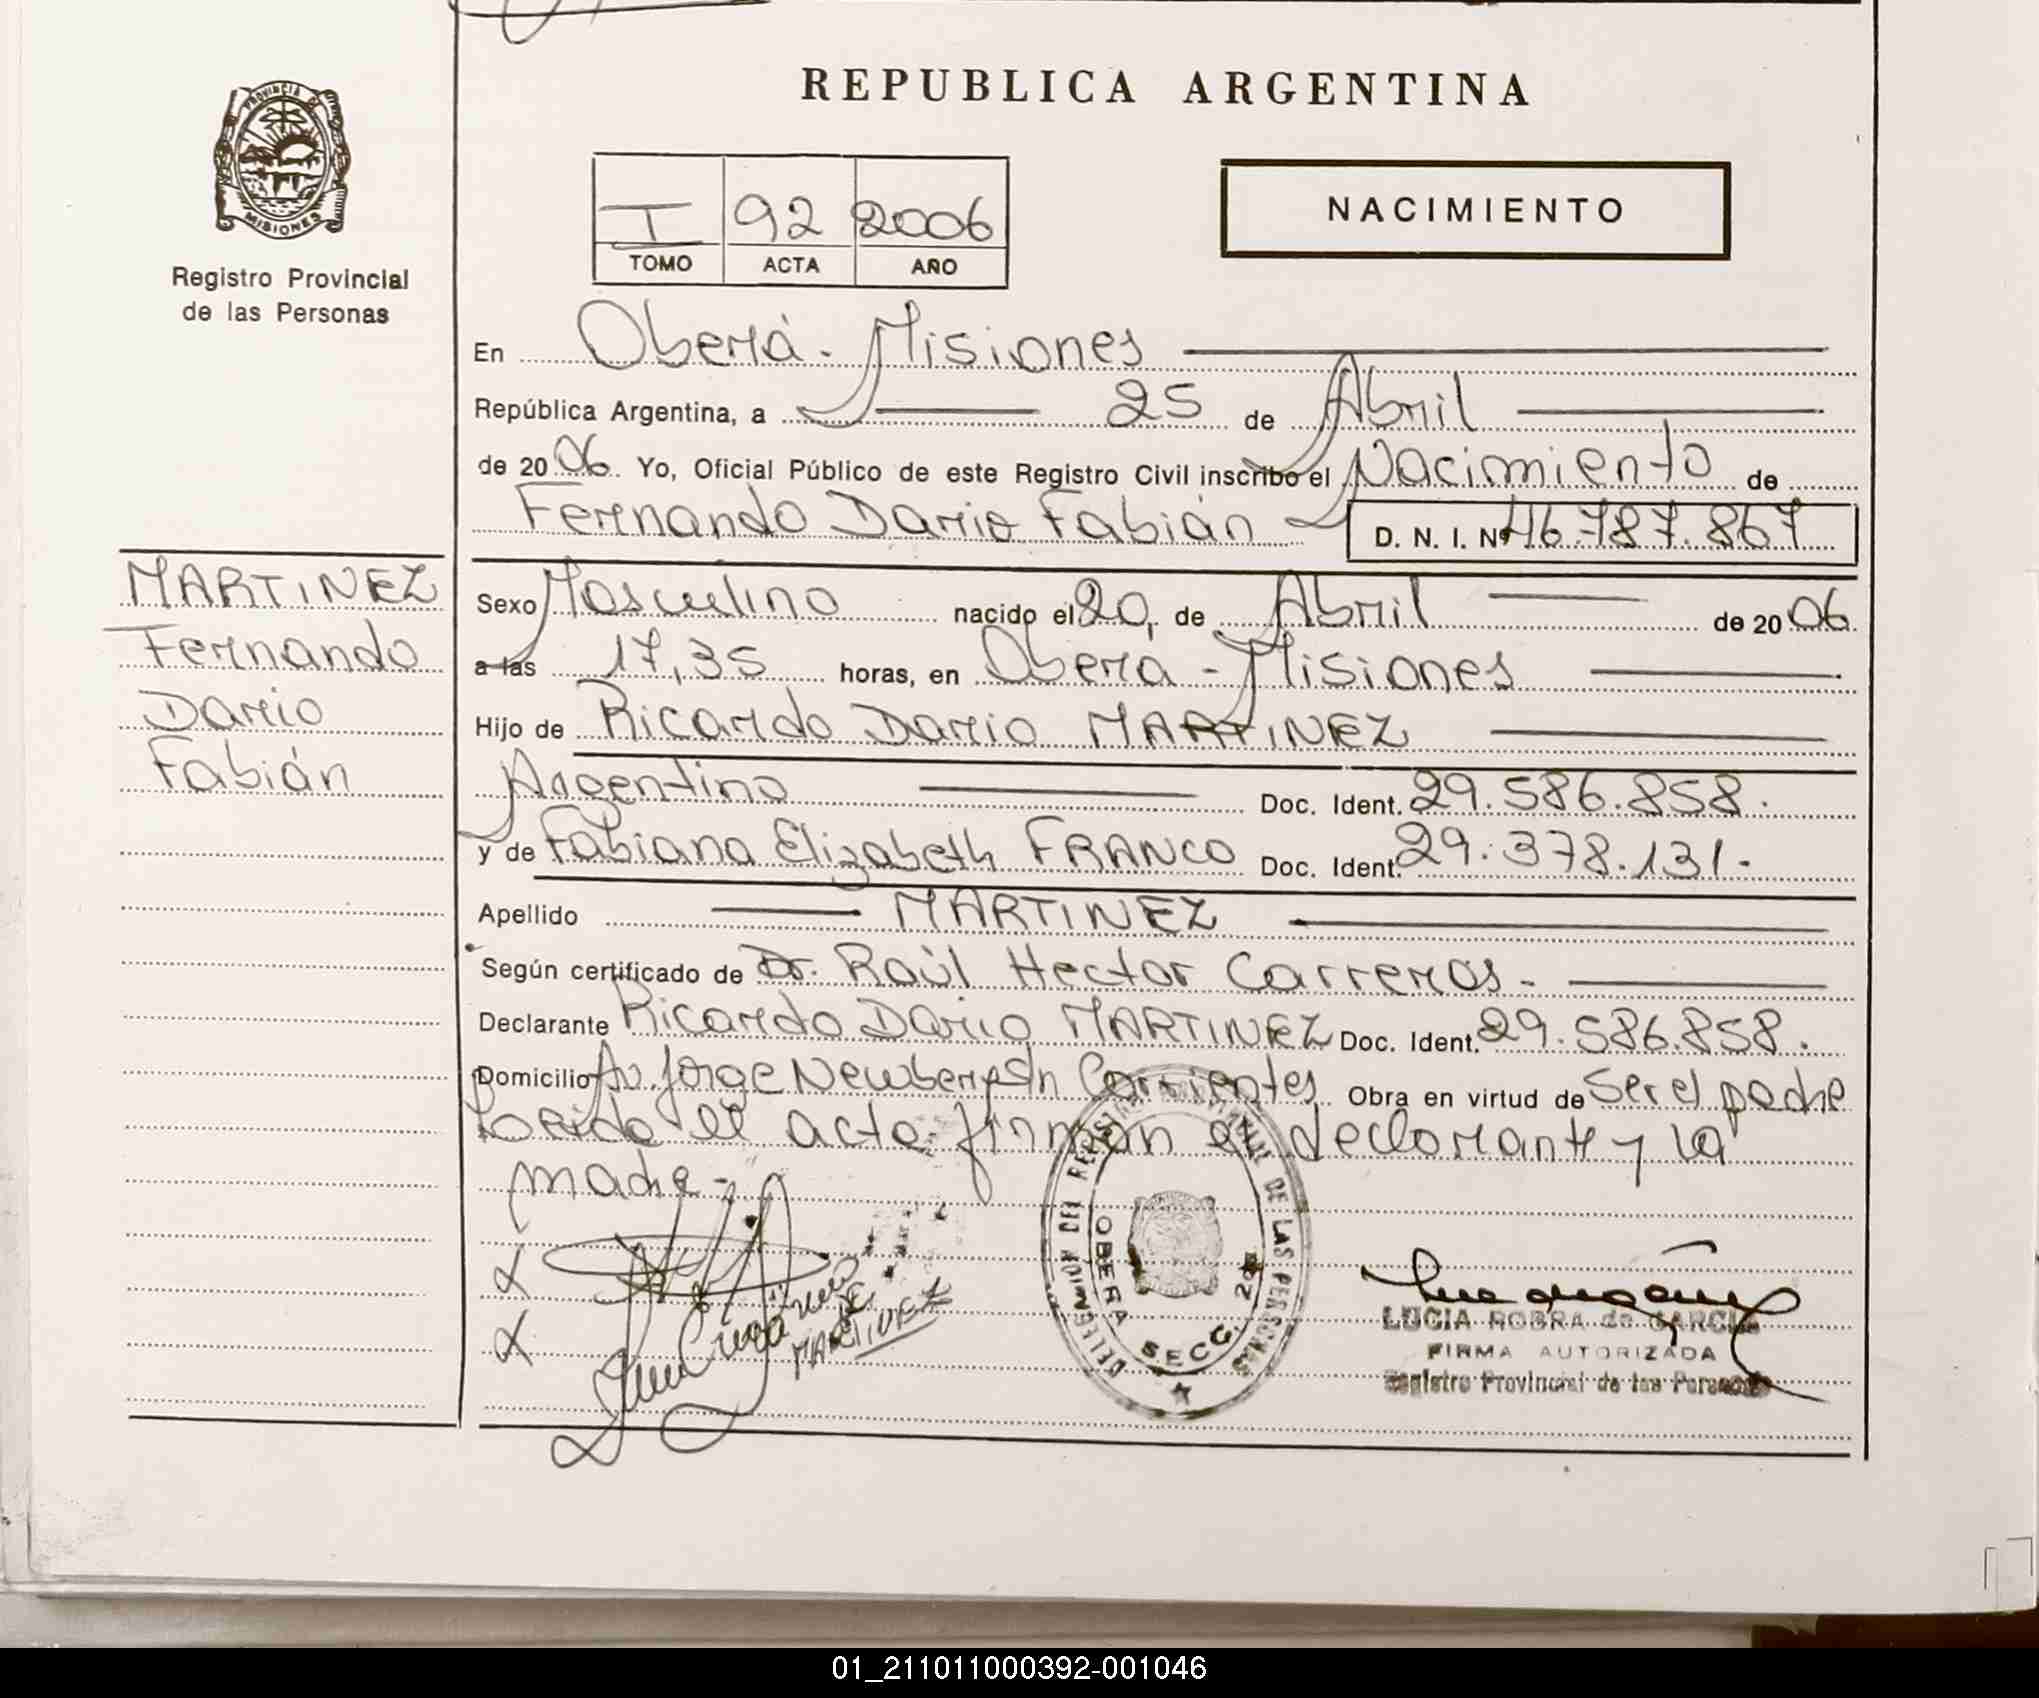 REPUBLICA ARGENTINA
PROVINCIA DE MISIONES
Registro Provincial
de las Personas
I 92 2006
TOMO ACTA AÑO
NACIMIENTO
En Oberá - Misiones
República Argentina, a 25 de Abril
de 2006 Yo, Oficial Público de este Registro Civil inscribo el Nacimiento de
Fernando Dario Fabián D. N. I. Nº 46.787.867
MARTINEZ
Fernando
Dario
Fabián
Sexo Masculino nacido el 20, de Abril de 2006
a las 17,35 horas, en Oberá - Misiones
Hijo de Ricardo Dario MARTINEZ
Argentino Doc. Ident. 29.586.858.
y de Fabiana Elizabeth FRANCO Doc. Ident. 29.378.131.
Apellido MARTINEZ
Según certificado de Dr. Raúl Hector Carreras.
Declarante Ricardo Dario MARTINEZ Doc. Ident. 29.586.858.
Domicilio Av. Jorge Newbery s/n Corrientes Obra en virtud de Ser el padre
Leida el acta firman el declarante y la
madre.
DE
MARTINEZ
DELEGACION DEL REGISTRO PROVINCIAL DE LAS PERSONAS
OBERA SECC. 2da
LUCIA ROBRA de GARCIA
FIRMA AUTORIZADA
Registro Provincial de las Personas
01_211011000392-001046